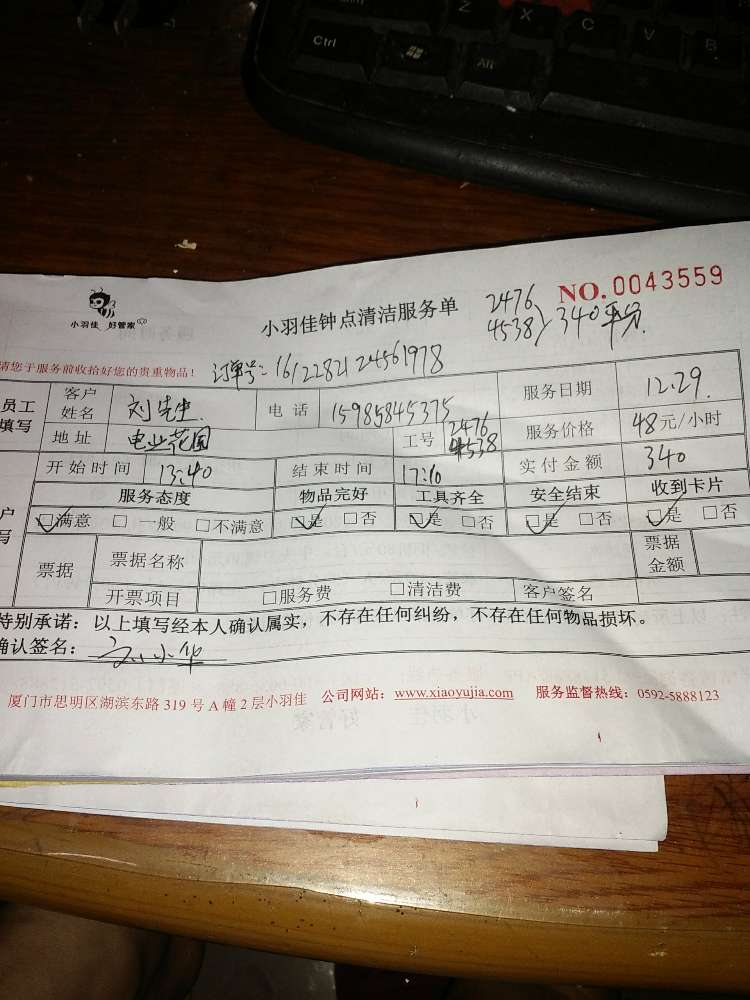 Z X C V B
Ctrl Alt
小羽佳 好管家
小羽佳钟点清洁服务单
2476
4538 } 340平分.
NO.0043559
请您于服务前收拾好您的贵重物品!
订单号:1612282124561978
员工填写
客户姓名 刘先生. 电话 15985845375 服务日期 12.29.
地址 电业花园 工号 2476 4538 服务价格 48元/小时
开始时间 13:40 结束时间 17:10 实付金额 340
户写
服务态度 物品完好 工具齐全 安全结束 收到卡片
☑满意 □一般 □不满意 ☑是 □否 ☑是 □否 ☑是 □否 ☑是 □否
票据 票据名称 票据金额
开票项目 □服务费 □清洁费 客户签名
特别承诺:以上填写经本人确认属实,不存在任何纠纷,不存在任何物品损坏。
确认签名:
厦门市思明区湖滨东路 319 号 A 幢 2 层小羽佳 公司网站:www.xiaoyujia.com 服务监督热线:0592-5888123